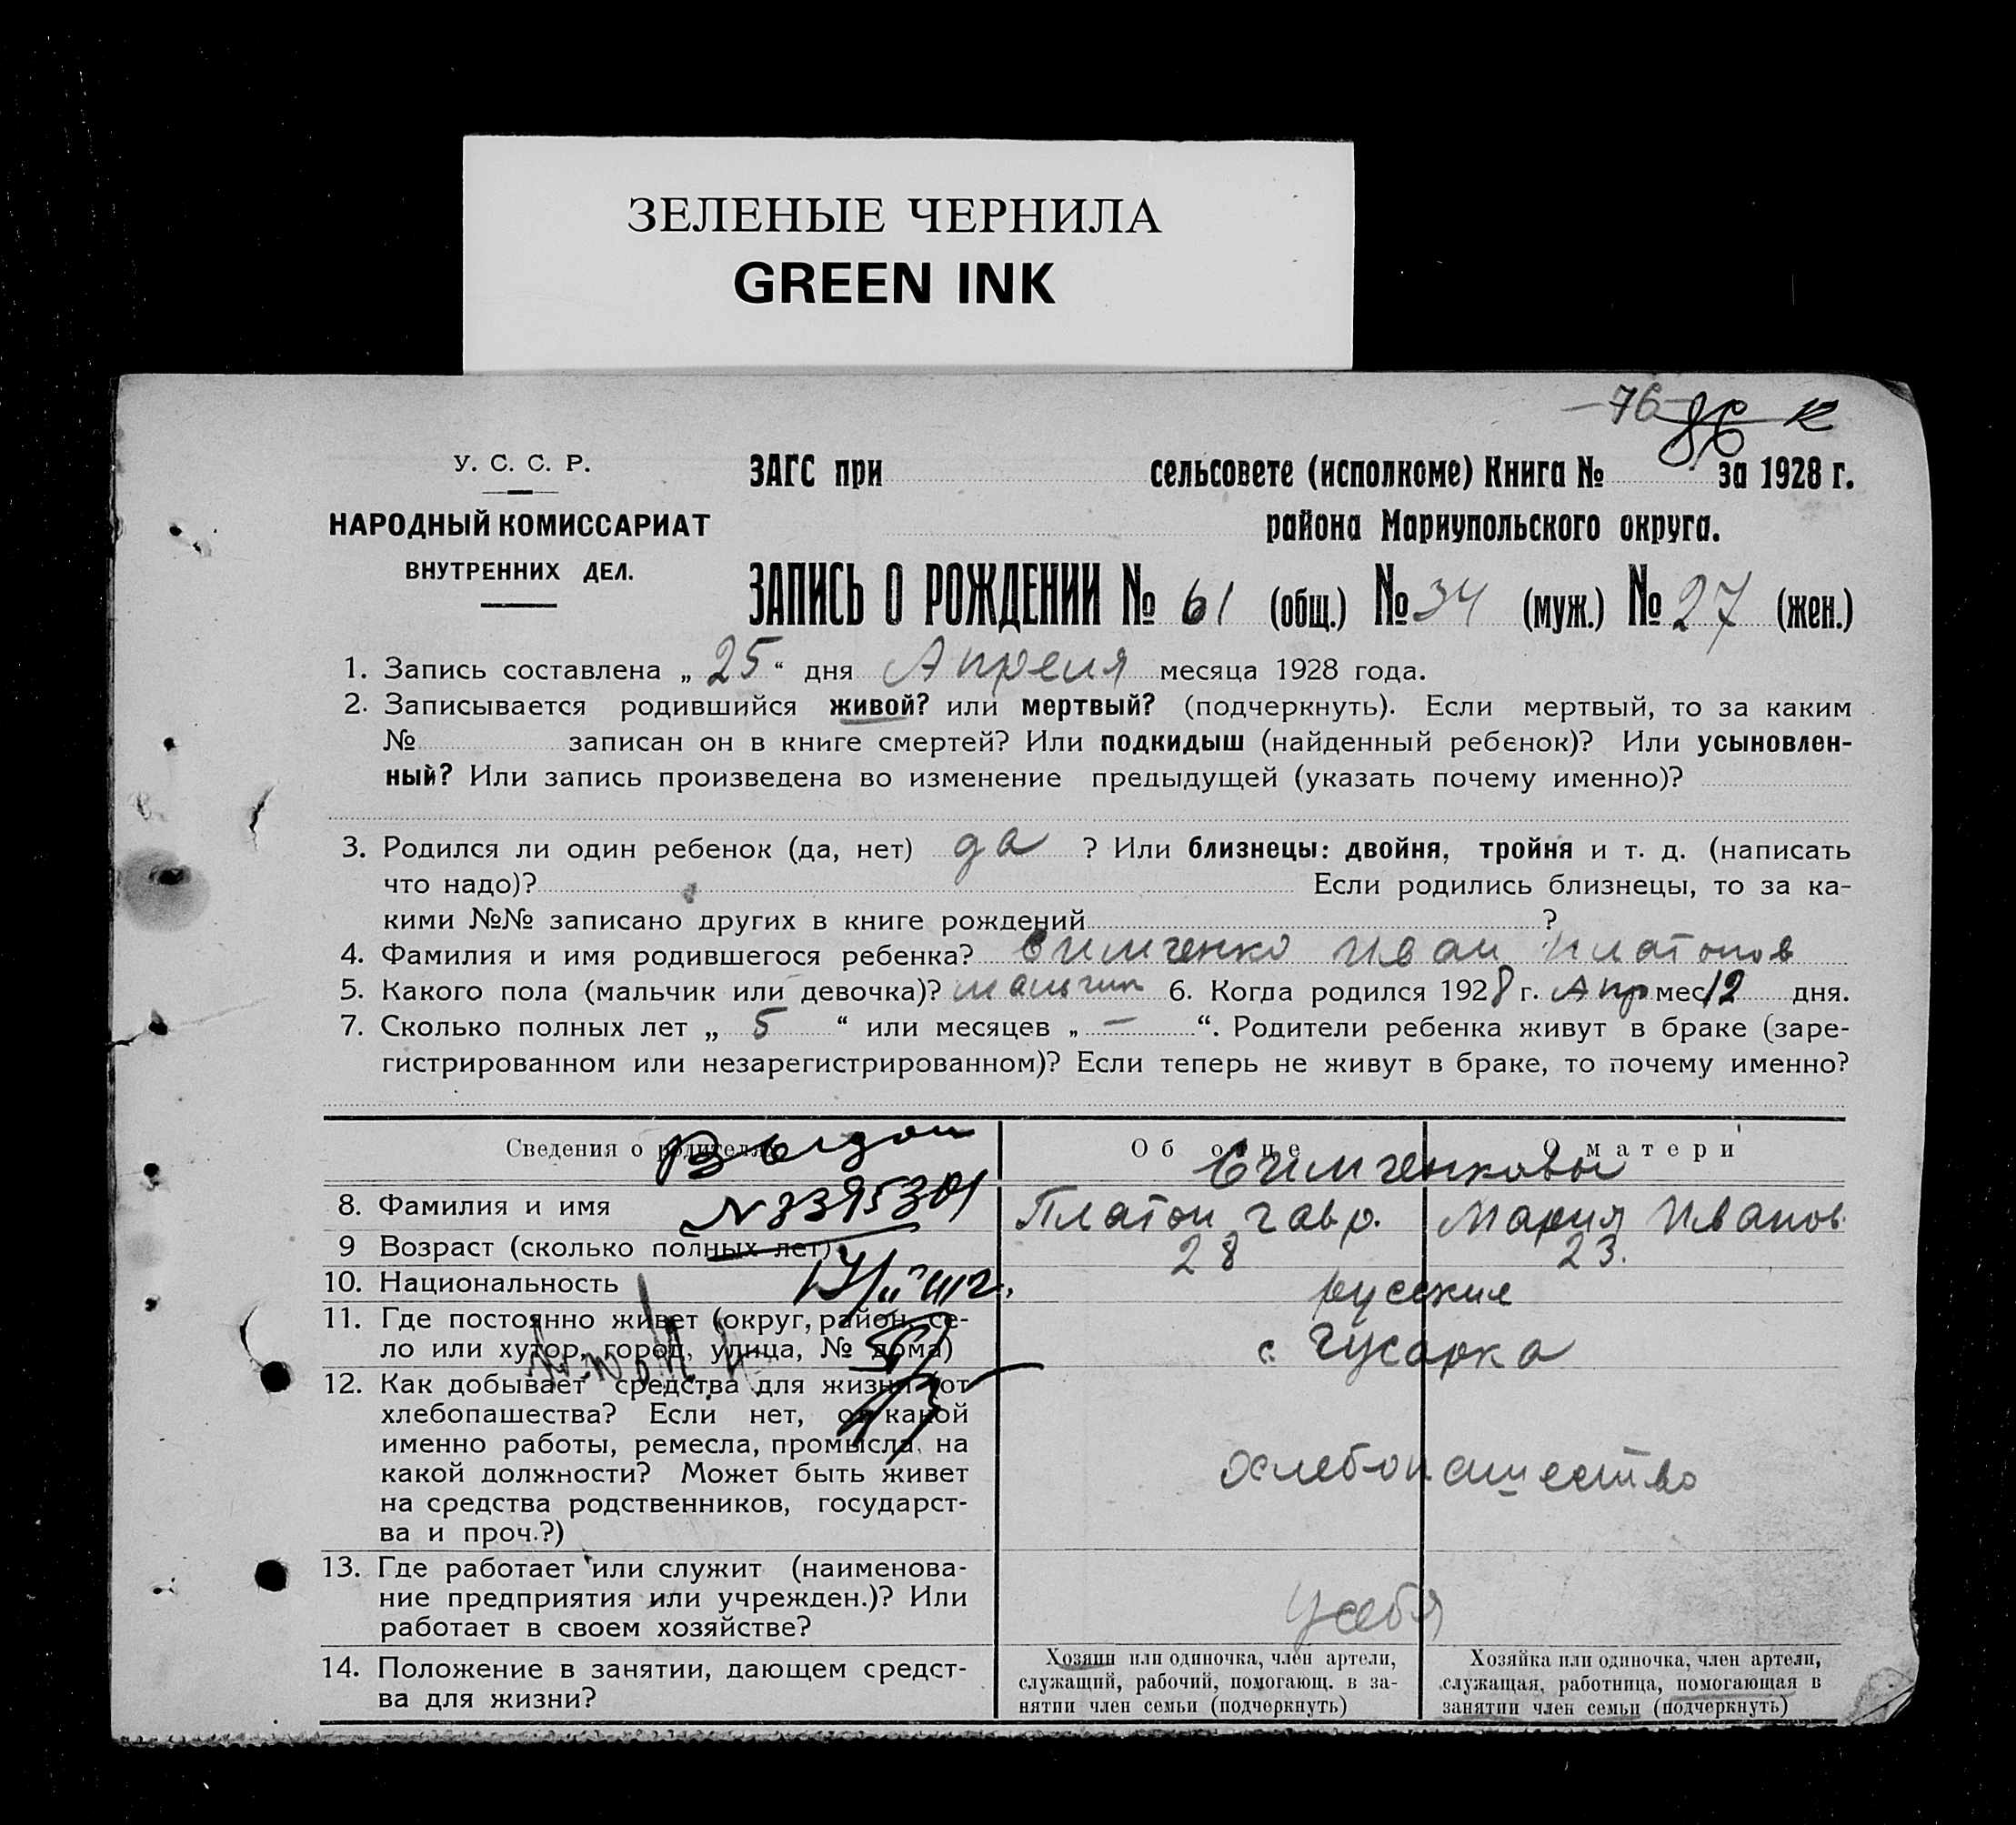 ЗЕЛЕНЫЕ ЧЕРНИЛА
GREEN INK
—76— 86 
У. С. С. Р.
НАРОДНЫЙ КОМИССАРИАТ
ВНУТРЕННИХ ДЕЛ.
ЗАГС при сельсовете (исполкоме) Книга № за 1928 г.
района Мариупольского округа.
ЗАПИСЬ О РОЖДЕНИИ № 61 (общ.) № 34 (муж.) № 27 (жен.)
1. Запись составлена „ 25 “ дня Апреля месяца 1928 года.
2. Записывается родившийся живой? или мертвый? (подчеркнуть). Если мертвый, то за каким
№ записан он в книге смертей? Или подкидыш (найденный ребенок)? Или усыновлен-
ный? Или запись произведена во изменение предыдущей (указать почему именно)?
3. Родился ли один ребенок (да, нет) да ? Или близнецы: двойня, тройня и т. д. (написать
что надо)? Если родились близнецы, то за ка-
кими №№ записано других в книге рождений ?
4. Фамилия и имя родившегося ребенка? Иван Платонов
5. Какого пола (мальчик или девочка)? мальчик 6. Когда родился 1928 г. Апр мес 12 дня.
7. Сколько полных лет „ 5 “ или месяцев „ — “. Родители ребенка живут в браке (заре-
гистрированном или незарегистрированном)? Если теперь не живут в браке, то почему именно?
Сведения о родителях Об отце О матери
8. Фамилия и имя Платон Гавр. Мария Иванов
9 Возраст (сколько полных лет) 28 23.
10. Национальность русские
11. Где постоянно живет (округ, район, се-
ло или хутор, город, улица, № дома) с. Гусарка
12. Как добывает средства для жизни (от
хлебопашества? Если нет, от какой
именно работы, ремесла, промысла, на
какой должности? Может быть живет
на средства родственников, государст-
ва и проч.?)
хлебопашество
13. Где работает или служит (наименова-
ние предприятия или учрежден.)? Или
работает в своем хозяйстве?
у себя
14. Положение в занятии, дающем средст-
ва для жизни?
Хозяин или одиночка, член артели,
служащий, рабочий, помогающ. в за-
нятии член семьи (подчеркнуть)
Хозяйка или одиночка, член артели,
служащая, работница, помогающая в
занятии член семьи (подчеркнуть)